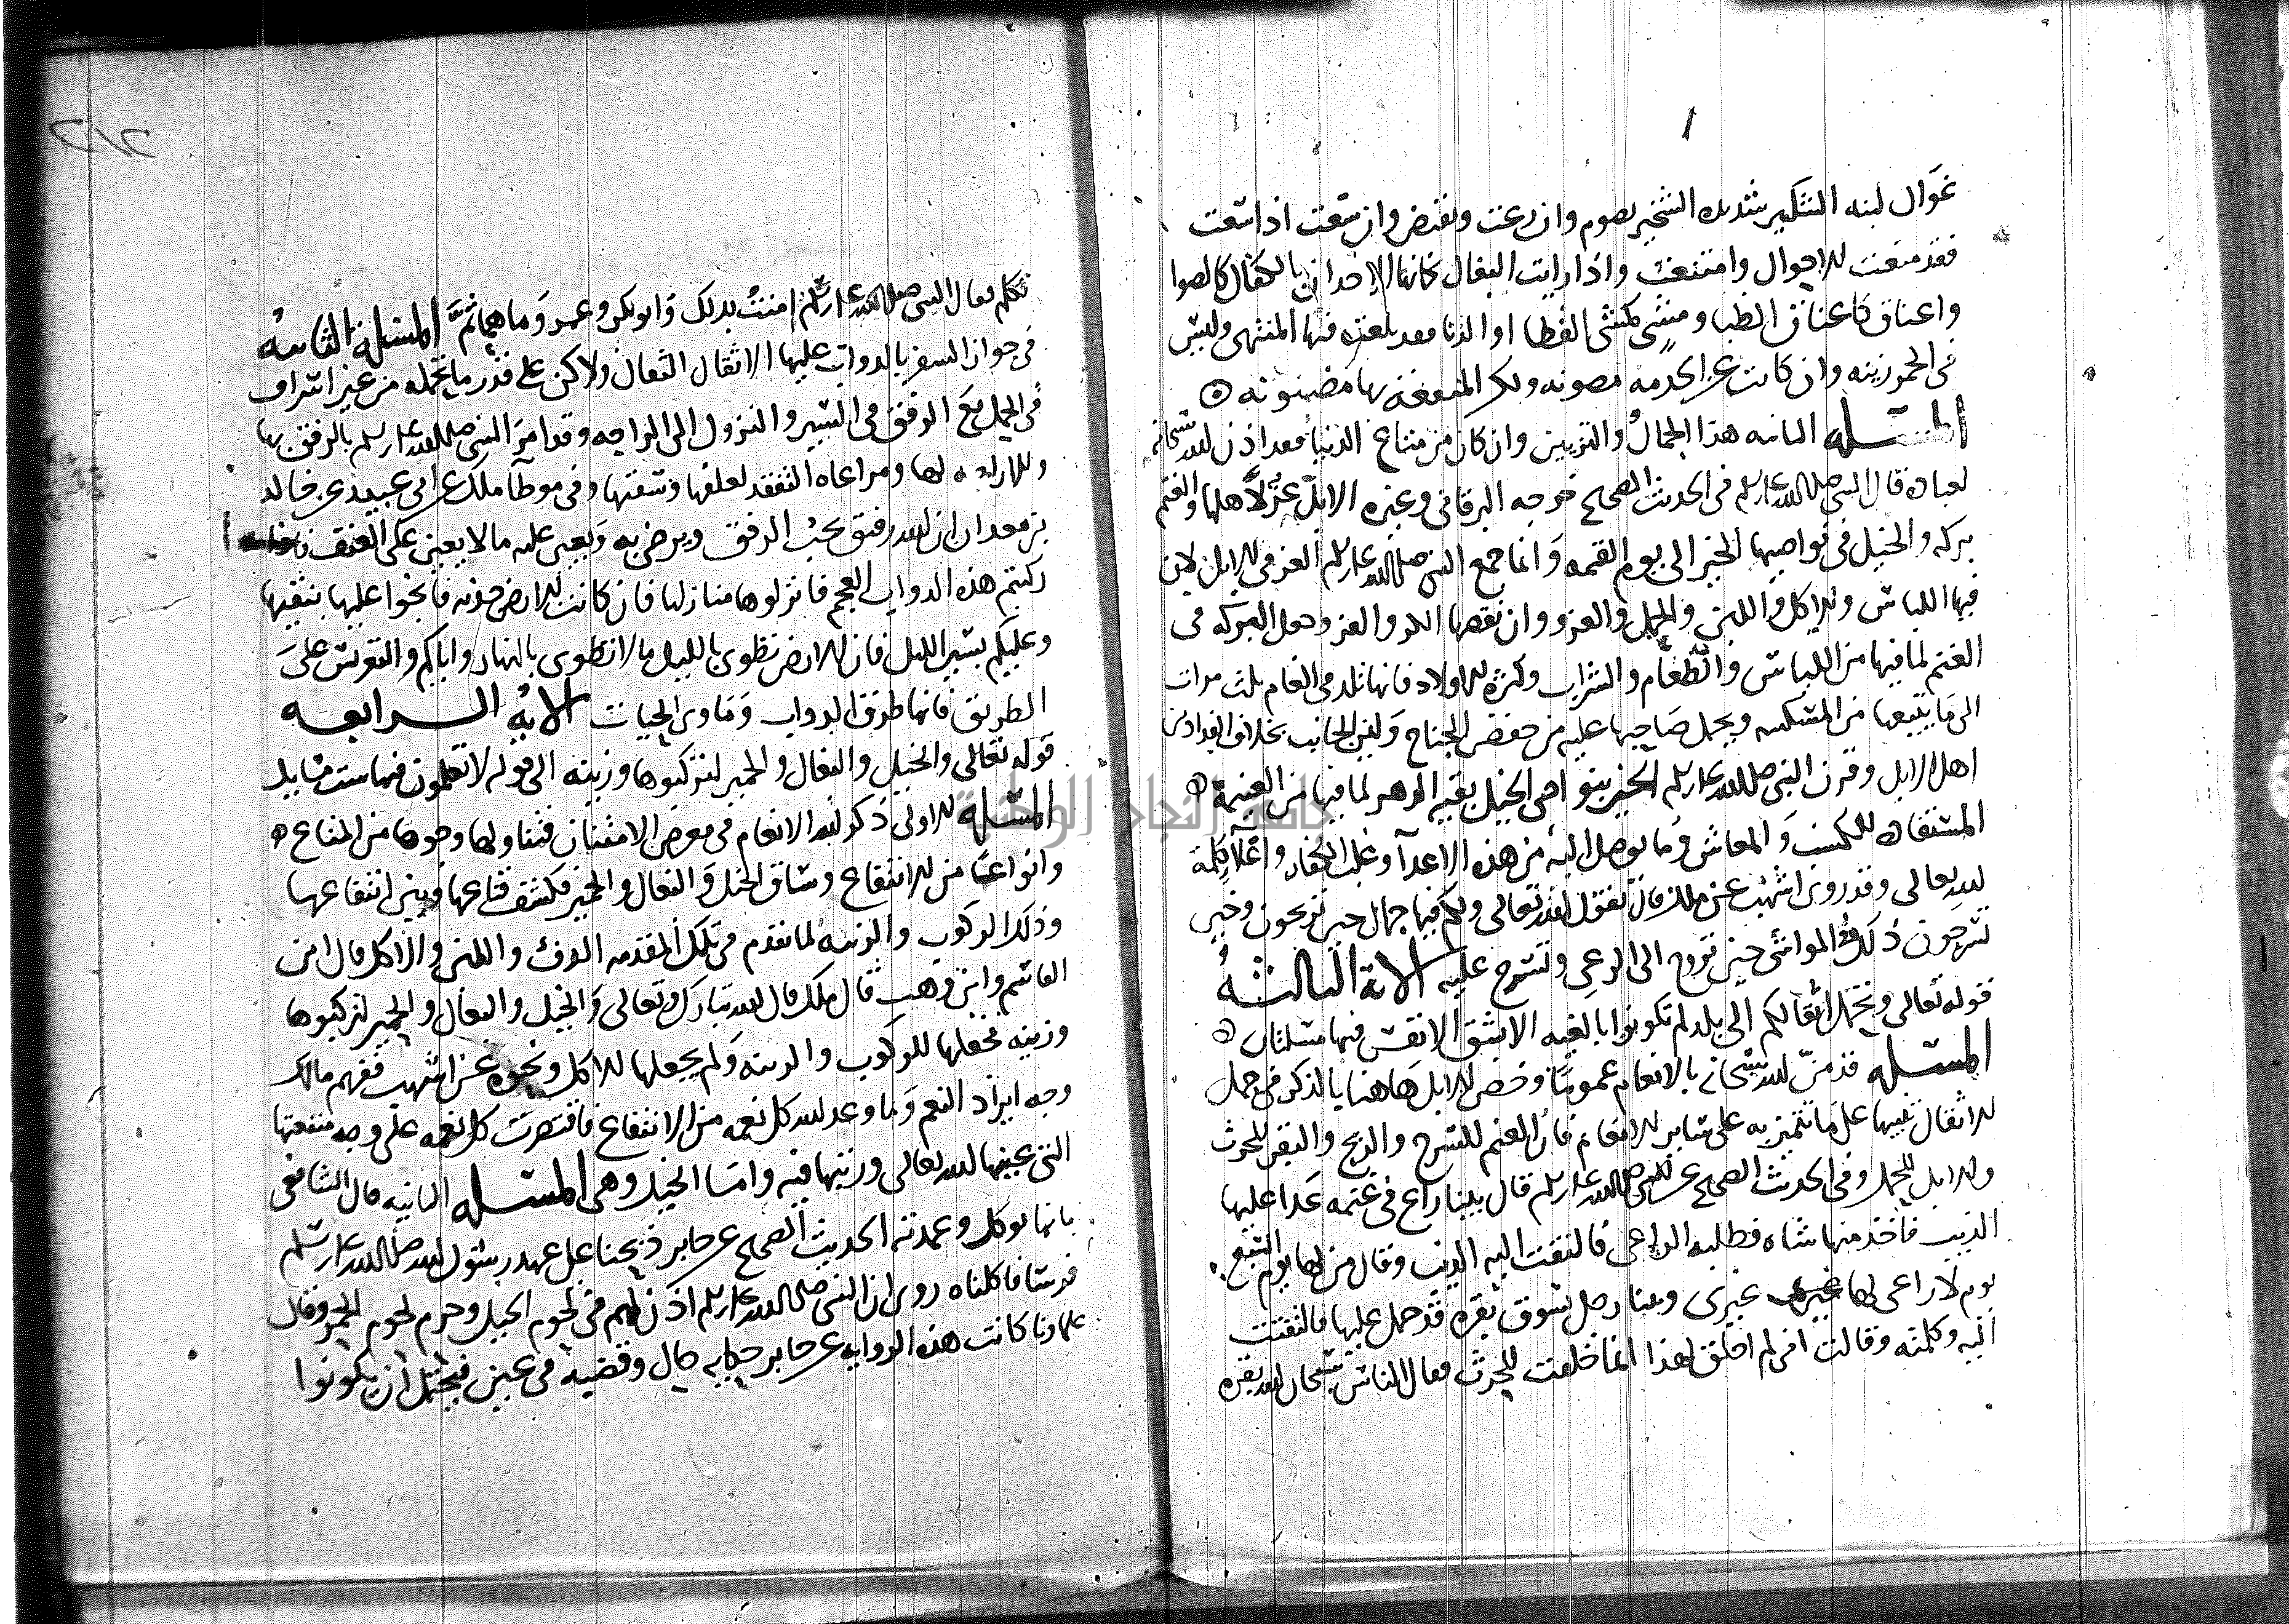 غوال لبنه الشكير شديده الشخير تصوم وان رعت وتفتض وان سقت اذا سقت
فقد منعت الاحوال وامتنعت واذا رايت البغال كانها الافدان باكفال كالصوا
واعناق كاعناق الظبا ومشى كمشى القطا او الدبا فقد بلغت فيها المنتهى وليس
في الحمر زينه وان كانت عن الخدمه مصونه ولكن المنفعه بها مضمونه
المسئله الثانيه هذا الجمال والتزيين وان كان من متاع الدنيا فقد اذن الله سبحانه
لعباده قال النبي صلى الله عليه وسلم في الحديث الصحيح خرجه البرقاني وغيره الابل عز لاهلها والغنم
بركه والخيل في نواصيها الخير الى يوم القيمه وانما جمع النبي صلى الله عليه وسلم العز في الابل لان
فيها اللباس والاكل واللبن والحمل والغزو وان نقصها الكر والفر وجعل البركه في
الغنم لما فيها من اللباس والطعام والشراب وكثره الاولاد فانها تلد في العام ثلث مرات
الى ما يتبعها من السكينه ويحمل صاحبها عليه من خفض الجناح ولين الجانب بخلاف الفدادين
اهل الابل وقرن النبي صلى الله عليه وسلم الخير بنواصى الخيل بقيه الدهر لما فيها من الغنيمة
المستفاده للكسب والمعاش وما يوصل اليه من هذه الاعدا وغلب الكفار واعلا كلمة
الله تعالى وقد روى اشهب عن ملك قال يقول الله تعالى ولكم فيها جمال حين تريحون وحين
تسرحون ذلك في المواشى حين تروح الى الرعى وتسرح عليه الاية الثالثة
قوله تعالى وتحمل اثقالكم الى بلد لم تكونوا بالغيه الا بشق الانفس فيها مسئلتان
المسئله قد من الله سبحانه بالانعام عموما وخص الابل هاهنا بالذكر في حمل
الاثقال تنبيها على ما تتميز به على ساير الانعام فان الغنم للسرح والذبح والبقر للحرث
والابل للحمل وفي الحديث الصحيح عن النبي صلى الله عليه وسلم قال بينا راع في غنمه عدا عليها
الذيب فاخذ منها شاه فطلبه الراعي فالتفت اليه الذيب وقال من لها يوم السبع
يوم لا راعى لها غيرى وبينا رجل يسوق بقره قد حمل عليها فالتفتت
اليه وكلمته وقالت انى لم اخلق لهذا انما خلقت للحرث فقال الناس سبحان الله بقره
تكلم فقال النبي صلى الله عليه وسلم امنت بذلك وابو بكر وعمر وما هما ثم المسئلة الثانيه
في جواز السفر بالدواب عليها الاثقال الثقال ولاكن على قدر ما تحمله من غير اسراف
في الحمل مع الرفق في السير والنزول الى الراحه وقد امر النبي صلى الله عليه وسلم بالرفق بها
والاراحه لها ومراعاه التفقد لعلفها وسقيها وفي موطا ملك عن ابى عبيد عن خالد
بن معدان ان الله رفيق يحب الرفق ويرضى به ويعين عليه ما لا يعين على العنف فاذا
ركبتم هذه الدواب العجم فانزلوها منازلها فان كانت الارض جدبه فانجوا عليها بنقيها
وعليكم بسير الليل فان الارض تطوى بالليل ما لا تطوى بالنهار واياكم والتعريس على
الطريق فانها طرق الدواب وماوى الحيات الايه الرابعه
قوله تعالى والخيل والبغال والحمير لتركبوها وزينه الى قوله لا تعلمون فيها ست مسايل
المسئله الاولى ذكر الله الانعام في معرض الامتنان فتناولها وجوها من المتاع
وانواعا من الانتفاع وساق الخيل والبغال والحمير فكشف قناعها وبين انتفاعها
وذلك الركوب والزينه كما تقدم في تلك المقدمه الدفء واللبن والاكل قال ابن
القاسم وابن وهب قال ملك قال الله تبارك وتعالى والخيل والبغال والحمير لتركبوها
وزينه فجعلها للركوب والزينه ولم يجعلها للاكل ونحوه عن اشهب ففهم مالك
وجه ايراد النعم وما وعد الله كل نعمه من الانتفاع فاقتصرت كل نعمه على وجه منفعتها
التي عينها الله تعالى ورتبها فيه واما الخيل وهى المسئله الثانيه قال الشافعى
بانها توكل وعمدته الحديث الصحيح عن جابر ذبحنا على عهد رسول الله صلى الله عليه وسلم
فرسا فاكلناه روى ان النبي صلى الله عليه وسلم اذن لهم في لحوم الخيل وحرم لحوم الحمر وقال
علماونا كانت هذه الروايه عن جابر حكايه حال وقضيه في عين فيحتمل ان يكونوا
جامعة النجاح الوطنية